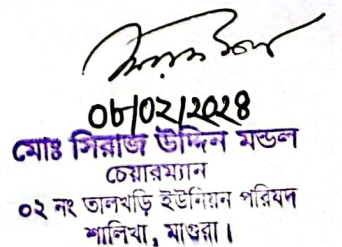 ০৮/০২/২০২৪
মোঃ সিরাজ উদ্দিন মন্ডল
চেয়ারম্যান
০২ নং তালখড়ি ইউনিয়ন পরিষদ
শালিখা, মাগুরা।